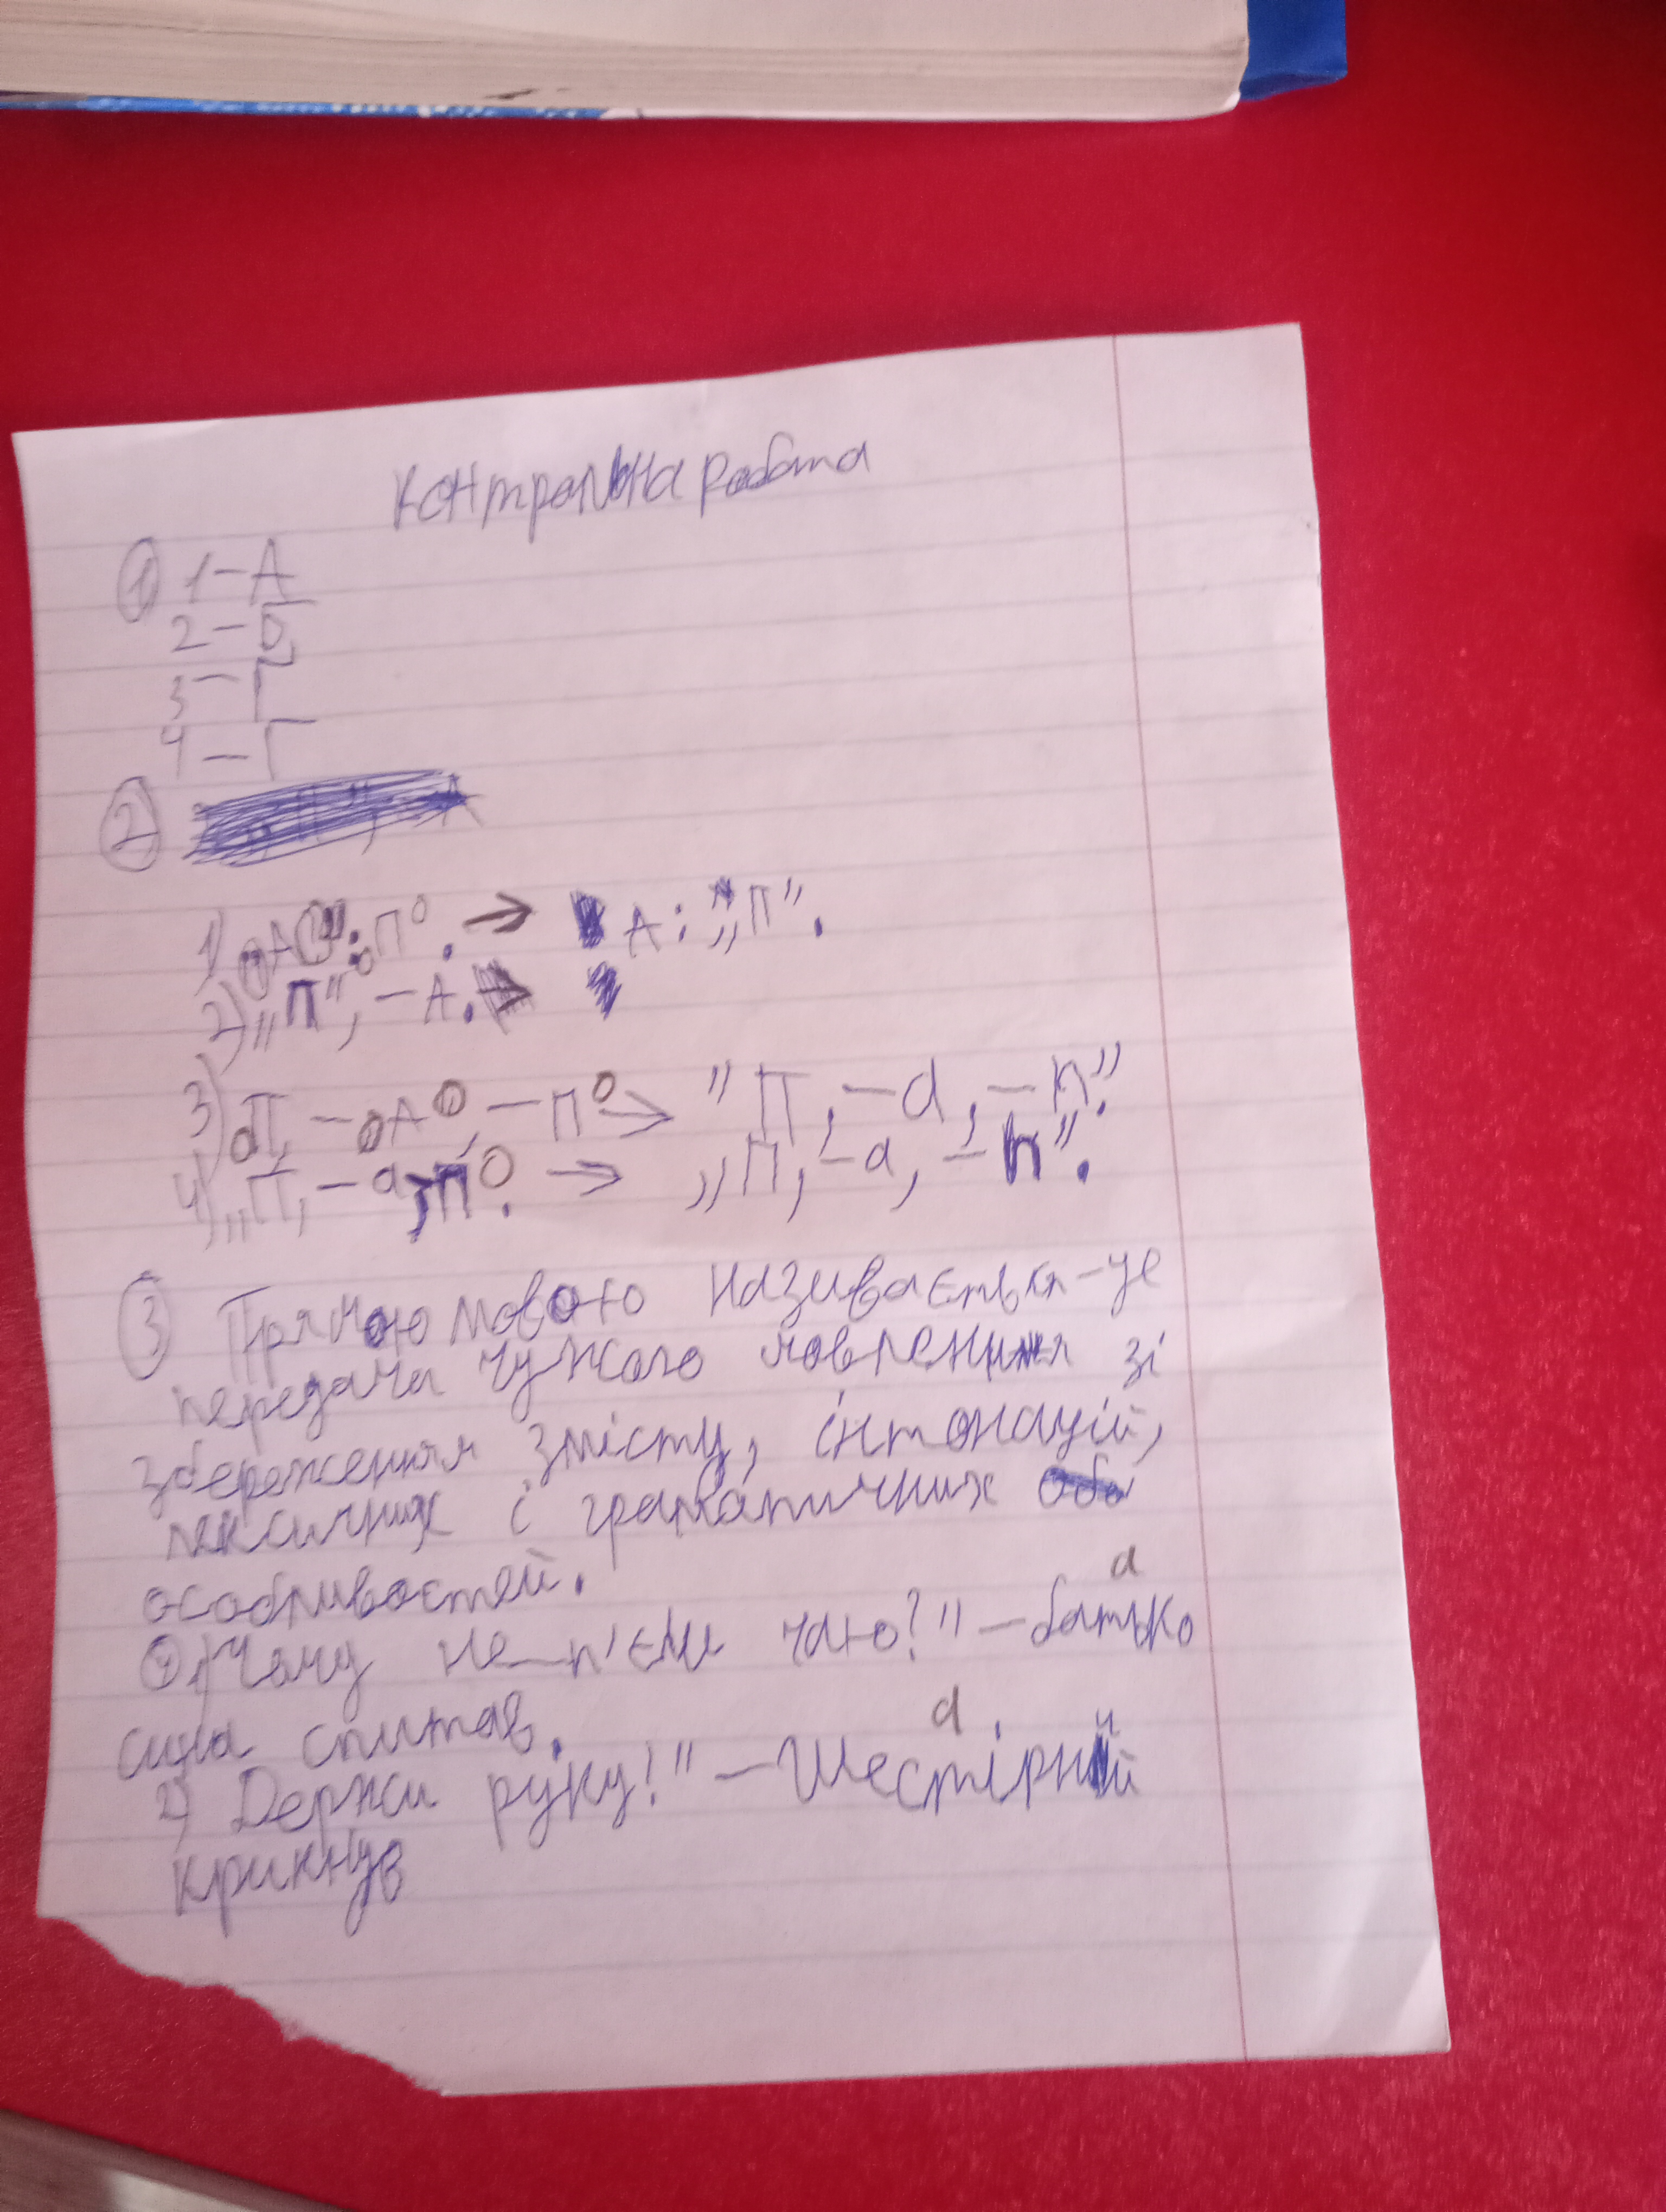 контрольна робота
① 1-А
2-Б
3-Г
4-Г
②
1) А: П. → А: „П".
2) „П", - А.
3) П, - А, - П → "П, - а, - п".
4) „П, - а, п. → „П, - а, - п".
③ Прямою мовою називається - це
передача чужого мовлення зі
збереження змісту, інтонацій,
лексичних і граматичних
особливостей.
④ 1) Чому не п'єш чаю?" - батько
а
сина спитав.
2) Держи руку!" - Шестірний
а
крикнув